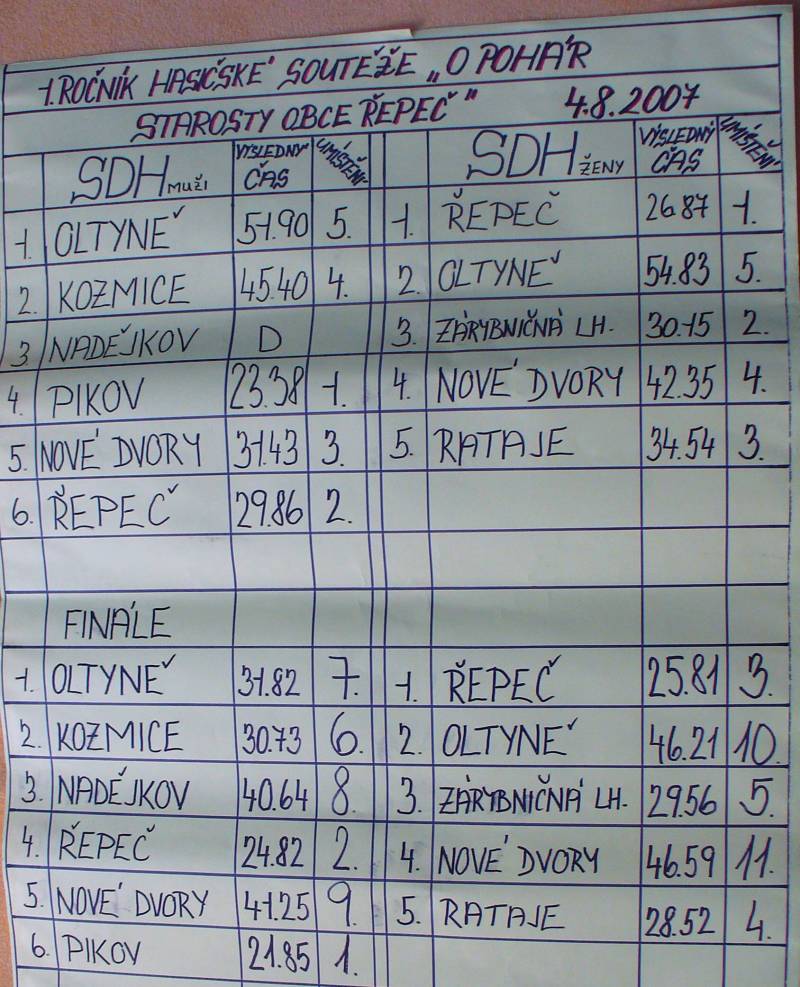 1. ROČNÍK HASIČSKÉ SOUTĚŽE „O POHÁR
STAROSTY OBCE ŘEPEČ" 4.8.2007
SDH MUŽI VÝSLEDNÝ ČAS UMÍSTĚNÍ SDH ŽENY VÝSLEDNÝ ČAS UMÍSTĚNÍ
1. OLTYNĚ 51.90 5. 1. ŘEPEČ 26.87 1.
2. KOZMICE 45.40 4. 2. OLTYNĚ 54.83 5.
3. NADĚJKOV D 3. ZÁRYBNIČNÁ LH. 30.15 2.
4. PIKOV 23.38 1. 4. NOVÉ DVORY 42.35 4.
5. NOVÉ DVORY 31.43 3. 5. RATAJE 34.54 3.
6. ŘEPEČ 29.86 2.
FINÁLE
1. OLTYNĚ 31.82 7. 1. ŘEPEČ 25.81 3.
2. KOZMICE 30.73 6. 2. OLTYNĚ 46.21 10.
3. NADĚJKOV 40.64 8. 3. ZÁRYBNIČNÁ LH. 29.56 5.
4. ŘEPEČ 24.82 2. 4. NOVÉ DVORY 46.59 11.
5. NOVÉ DVORY 41.25 9. 5. RATAJE 28.52 4.
6. PIKOV 21.85 1.